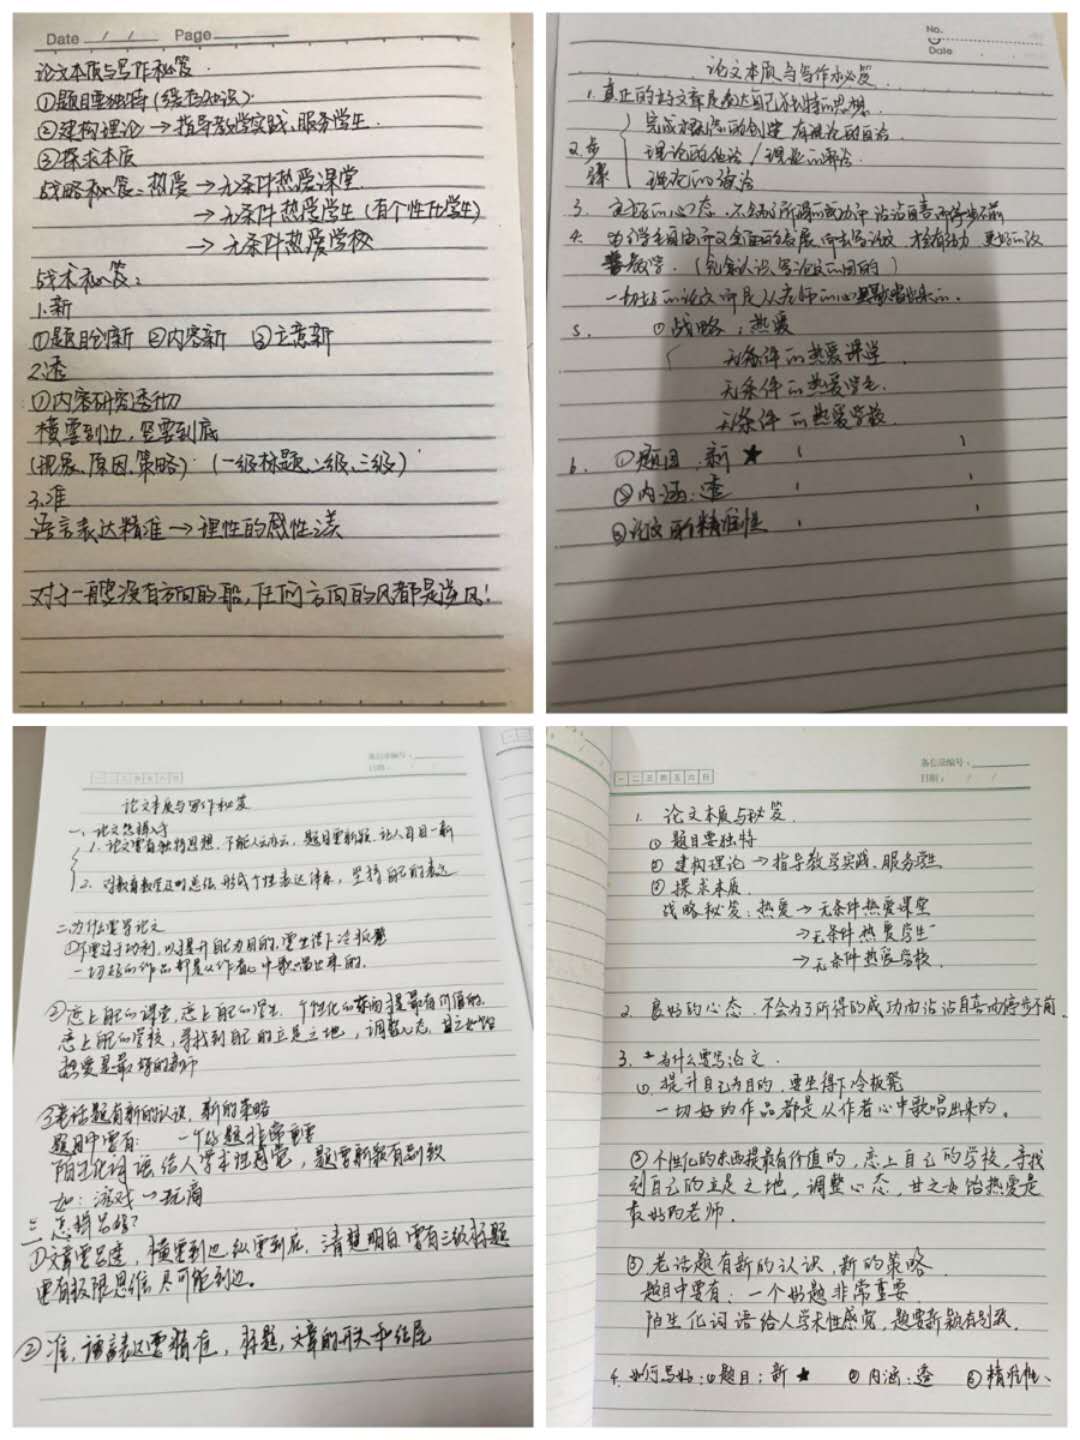 Date / / Page
论文本质与写作秘笈.
①题目要独特(缄默知识).
②建构理论→指导教学实践、服务学生.
③探求本质
战略秘笈:热爱→无条件热爱课堂.
→无条件热爱学生(有个性化学生)
→无条件热爱学校
战术秘笈:
1.新
①题目创新 ②内容新 ③立意新
2.透
①内容研究透彻
横要到边,竖要到底
(现象、原因、策略)(一级标题、二级、三级)
3.准
语言表达精准→理性的感性之美
对于一艘没有方向的船,任何方向的风都是逆风!
No.
Date
论文本质与写作秘笈.
1.真正的好文章是表达自己独特的思想.
完成概念的创建 有理论的自洽.
2.步骤 理论的
理论的
3. 良好的心态.不会为了所得的成功而沾沾自喜而停步不前
4. 为了学生自由而又全面的发展而去写论文,才会有张力 更好的改
善教学.(完全认识写论文的目的)
一切好的论文都是从老师的心里歌唱出来的.
5. ①战略:热爱
无条件的热爱课堂.
无条件的热爱学生.
无条件的热爱学校.
6. ①题目:新★
②内涵:透
③论文的精准性
一二三四五六日
备忘录编号:
日期: / /
论文本质与写作秘笈
一、论文怎样入手
1.论文要有独特思想,不能人云亦云,题目要新颖,让人耳目一新
2.对教育教学及时总结,形成个性表达体系,坚持自己的表达
二、为什么要写论文
①不要过于功利,以提升自己为目的,要坐得下冷板凳
一切好的作品都是从作者心中歌唱出来的.
②恋上自己的课堂,恋上自己的学生.个性化的东西才是最有价值的.
恋上自己的学校,寻找到自己的立足之地,调整心态,甘之如饴
热爱是最好的老师
③老话题有新的认识,新的策略
题目中要有: 一个好题非常重要
陌生化词语给人学术性感觉,题要新颖有别致
如:游戏—玩商
三、怎样写好?
①文章要写透,横要到边纵要到底,清楚明白,要有三级标题
要有极限思维,尽可能到边。
②准,语言表达要精准,标题,文章的开头和结尾
一二三四五六日
备忘录编号:
日期: / /
1. 论文本质与秘笈.
① 题目要独特
② 建构理论→指导教学实践、服务学生
③ 探求本质.
战略秘笈:热爱→无条件热爱课堂
→无条件热爱学生
→无条件热爱学校.
2. 良好的心态.不会为了所得的成功而沾沾自喜而停步不前.
3. *为什么要写论文.
①.提升自己为目的,要坐得下冷板凳
一切好的作品都是从作者心中歌唱出来的。
② 个性化的东西提最有价值的,恋上自己的学校,寻找
到自己的立足之地,调整心态,甘之如饴热爱是
最好的老师.
③ 老话题有新的认识,新的策略.
题目中要有:一个好题非常重要.
陌生化词语给人学术性感觉,题要新颖有别致.
4. 如何写好:①题目:新★ ②内涵:透 ③精准性、